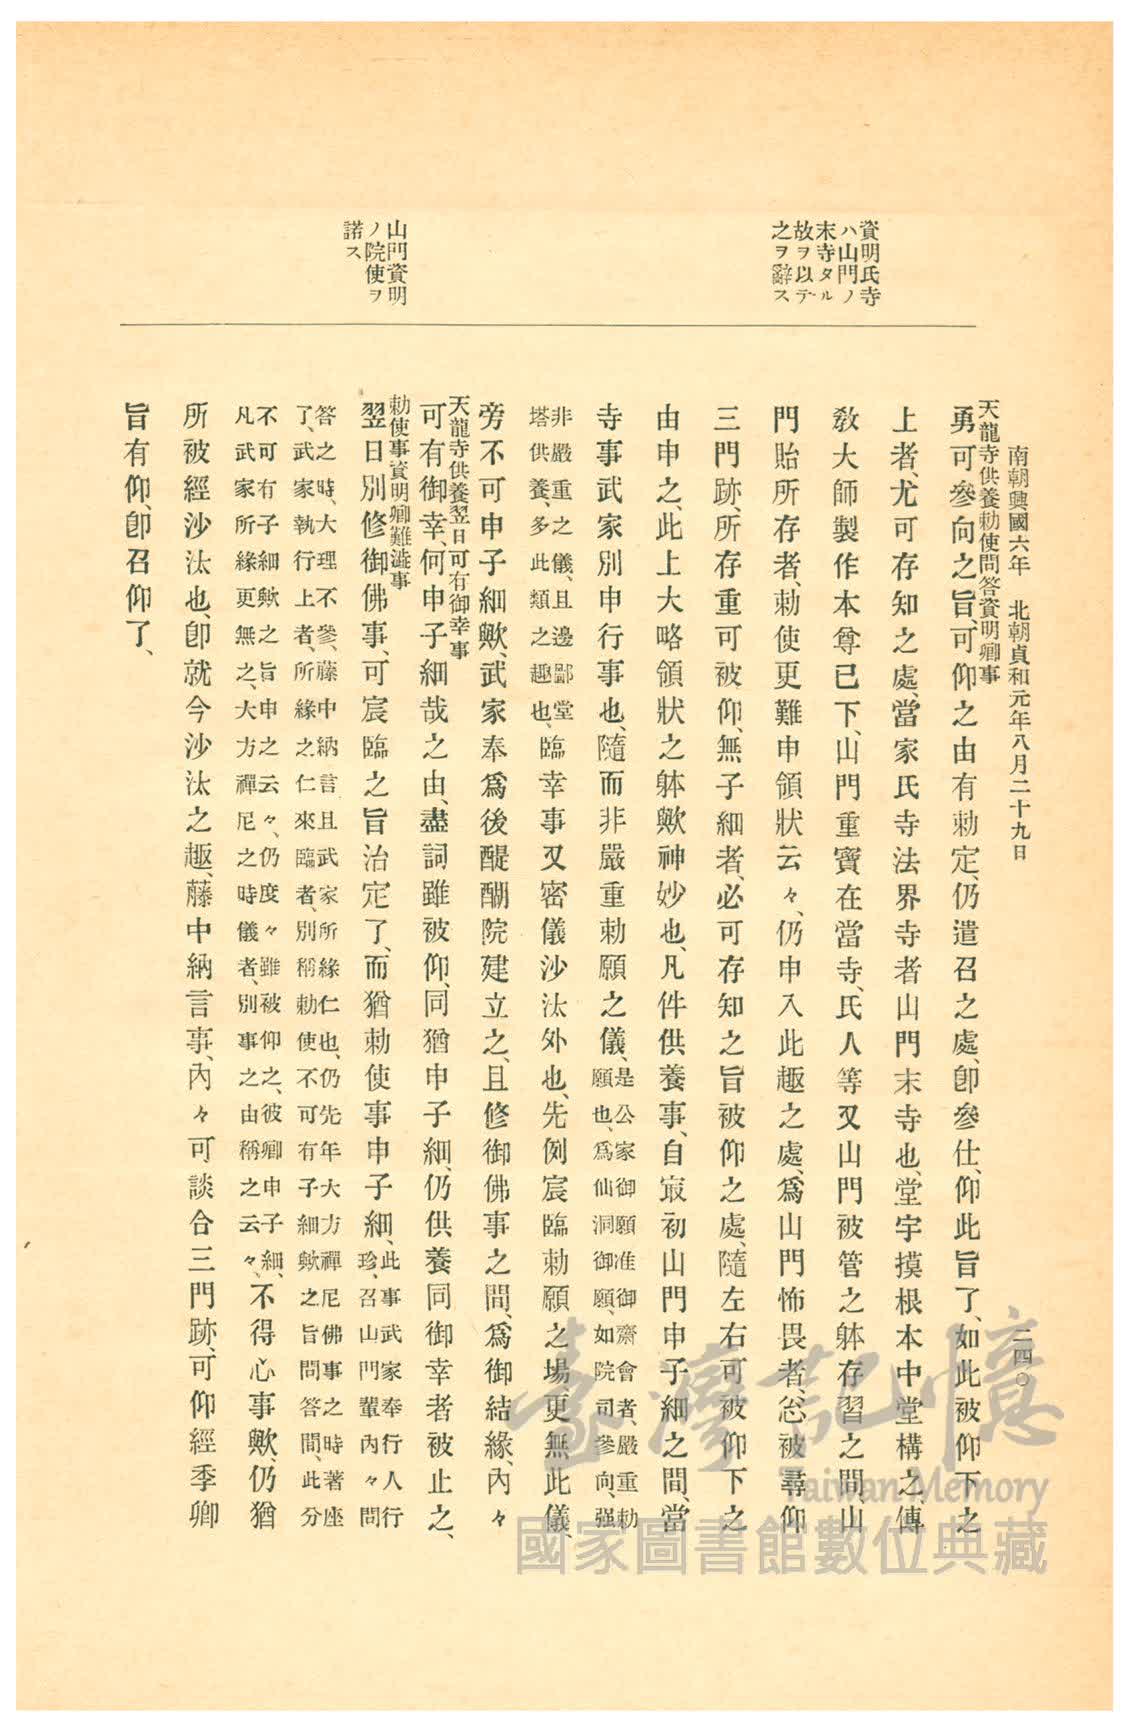 南朝興國六年　北朝貞和元年八月二十九日　二四〇
資明氏寺
ハ山門ノ
末寺タル
故ヲ以テ
之ヲ辭ス
山門資明
ノ院使ヲ
諾ス
天龍寺供養勅使問答資明卿事
勇可參向之旨、可仰之由有勅定、仍遣召之處、卽參仕、仰此旨了、如此被仰下之
上者、尤可存知之處、當家氏寺法界寺者山門末寺也、堂宇摸根本中堂構之、傳
敎大師製作本尊已下、山門重寶在當寺、氏人等又山門被管之躰存習之間、山
門貽所存者、勅使更難申領狀云々、仍申入此趣之處、爲山門怖畏者、忩被尋仰
三門跡、所存重可被仰、無子細者、必可存知之旨被仰之處、隨左右可被仰下之
由申之、此上大略領狀之躰歟、神妙也、凡件供養事、自寂初山門申子細之間、當
寺事武家別申行事也、隨而非嚴重勅願之儀、是公家御願准御齋會者、嚴重勅
願也、爲仙洞御願、如院司參向、强
非嚴重之儀、且邊鄙堂
塔供養、多此類之趣也、臨幸事又密儀沙汰外也、先例宸臨勅願之場、更無此儀、
旁不可申子細歟、武家奉爲後醍醐院建立之、且修御佛事之間、爲御結緣、內々
天龍寺供養翌日可有御幸事
可有御幸、何申子細哉之由、盡詞雖被仰、同猶申子細、仍供養同御幸者被止之、
勅使事資明卿難澁事
翌日別修御佛事、可宸臨之旨治定了、而猶勅使事申子細、此事武家奉行人行
珍、召山門輩內々問
答之時、大理不參、藤中納言且武家所緣仁也、仍先年大方禪尼佛事之時著座
了、武家執行上者、所緣之仁來臨者、別稱勅使不可有子細歟之旨問答間、此分
不可有子細歟之旨申之云々、仍度々雖被仰之、彼卿申子細、
凡武家所緣更無之、大方禪尼之時儀者、別事之由稱之云々、不得心事歟、仍猶
所被經沙汰也、卽就今沙汰之趣、藤中納言事、內々可談合三門跡、可仰經季卿
旨有仰、卽召仰了、
臺灣記憶
Taiwan Memory
國家圖書館數位典藏